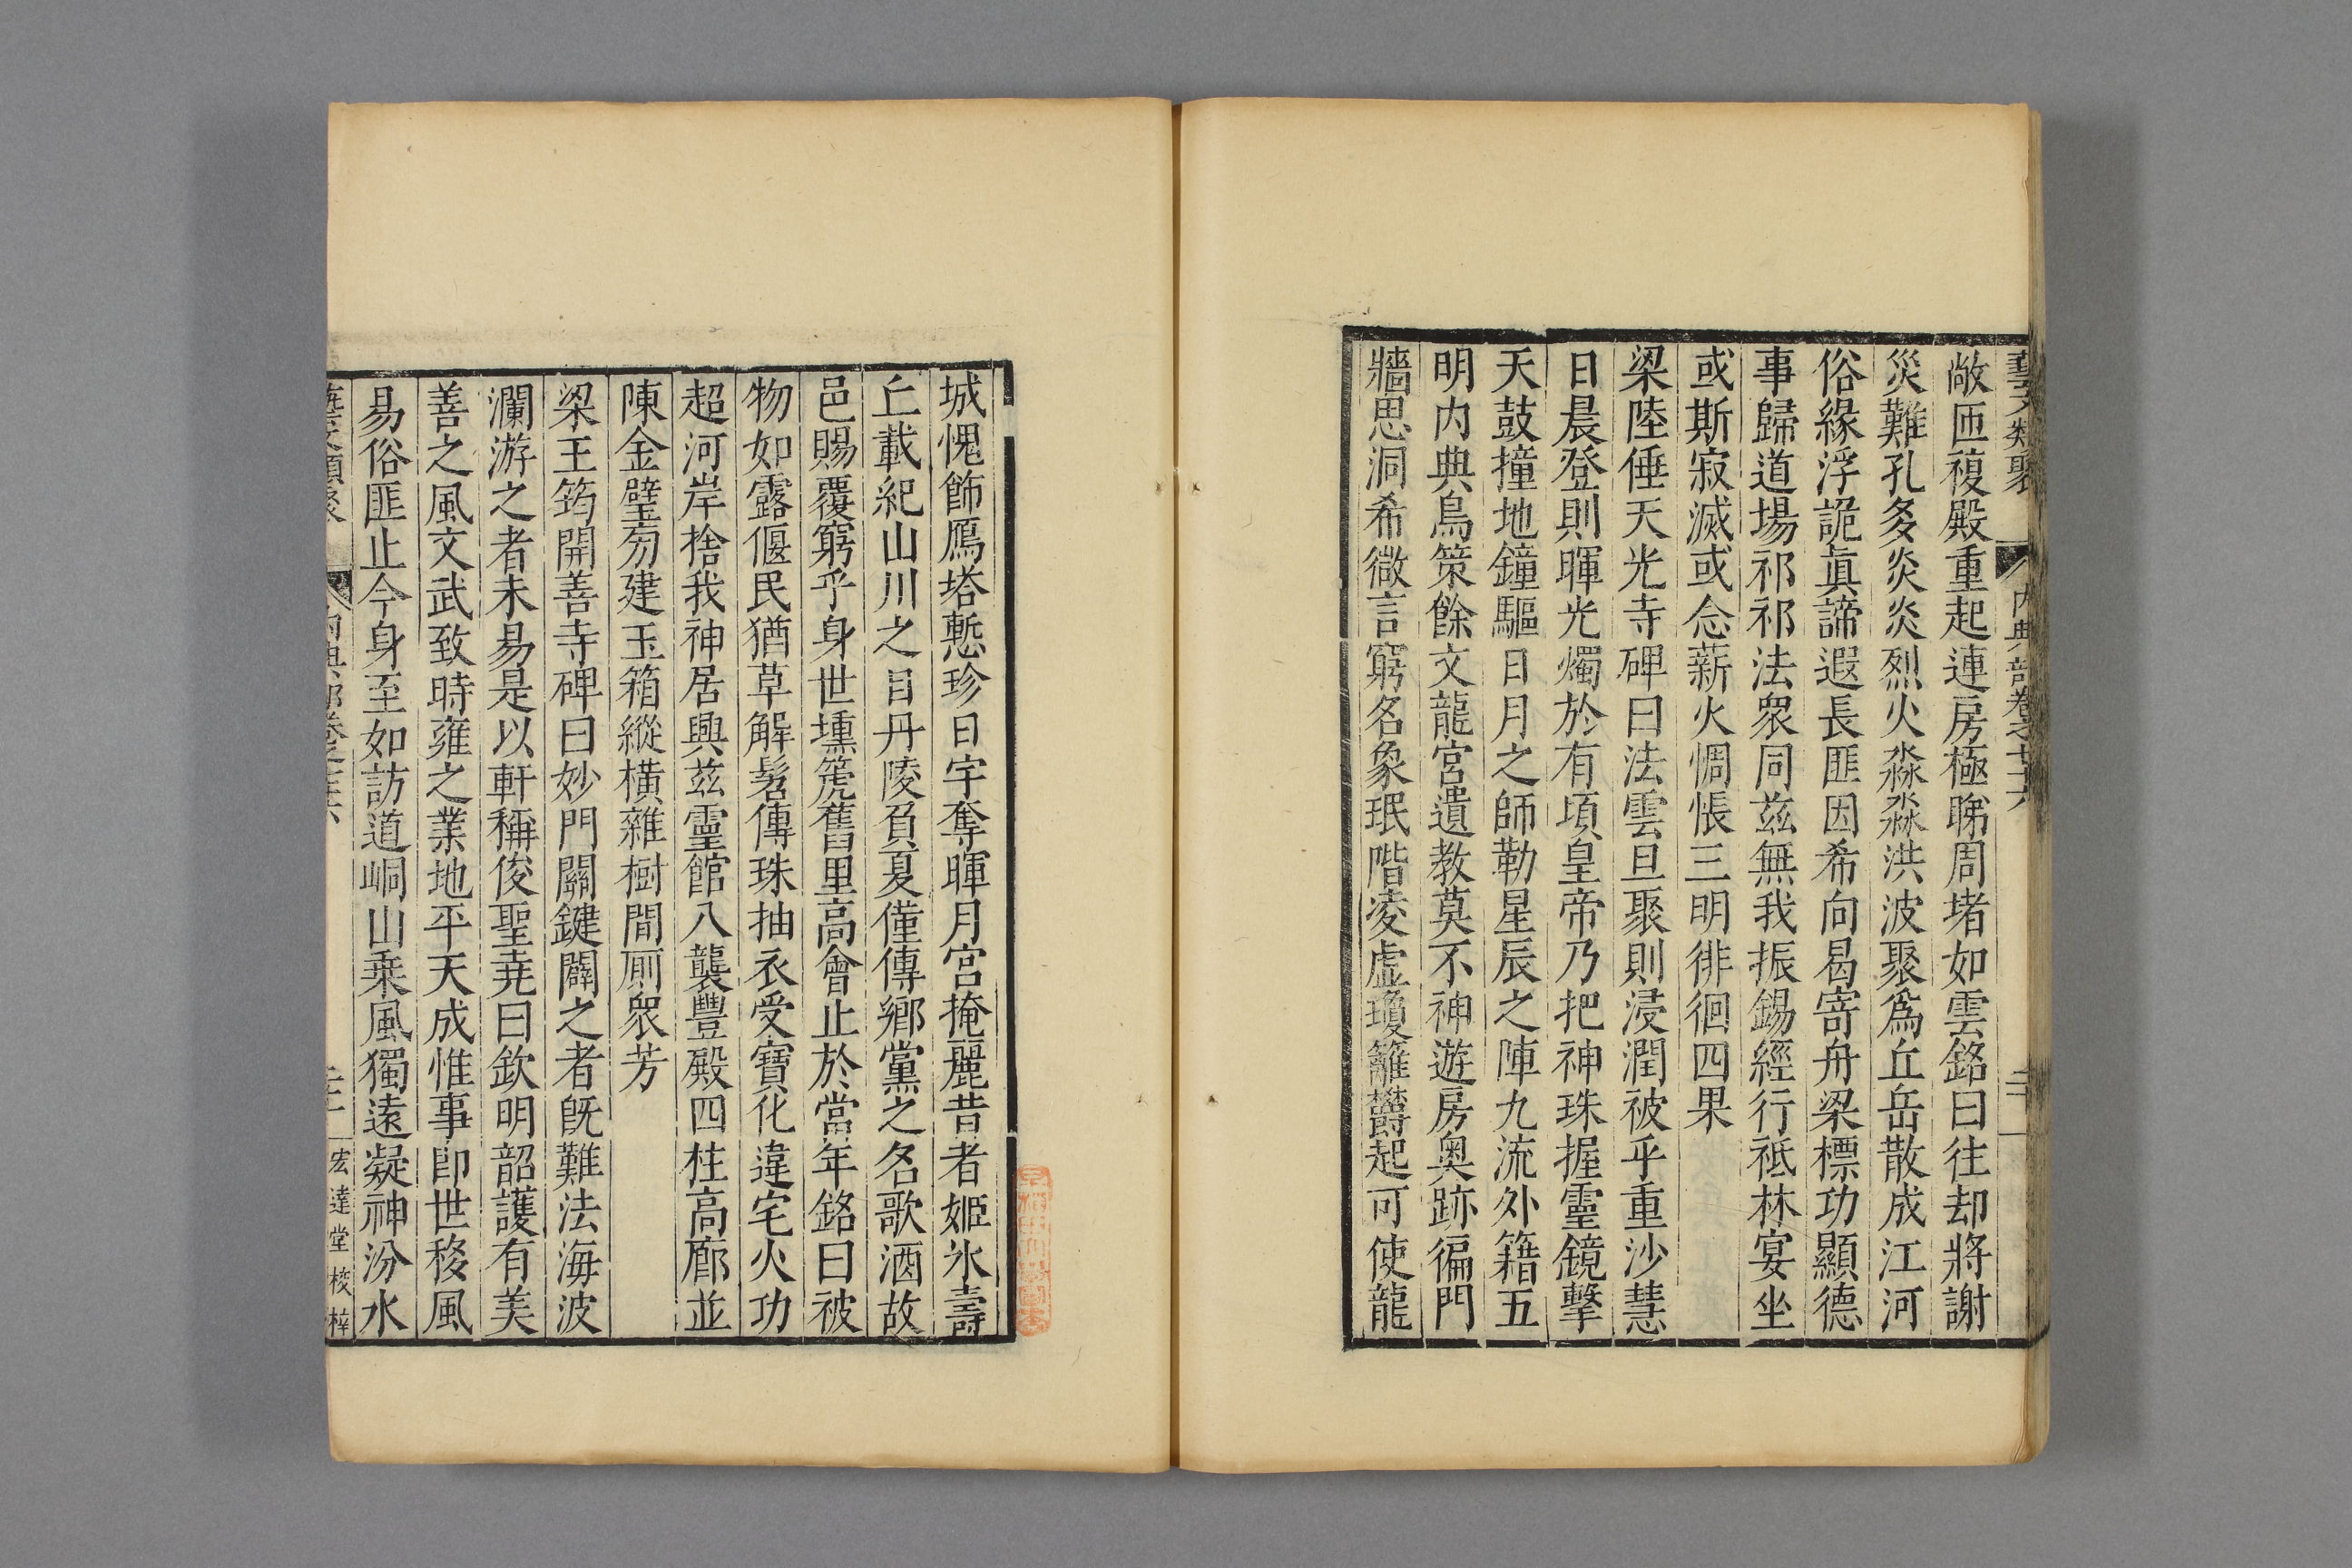 藝文類聚 內典部卷七十六
敞匝複殿重起連房極睇周堵如雲銘曰往却將謝
災難孔多炎炎烈火淼淼洪波聚爲丘岳散成江河
俗緣浮詭眞諦遐長匪因希向曷寄舟梁標功顯德
事歸道場祁祁法衆同兹無我振錫經行祗林宴坐
或斯寂滅或念薪火惆悵三明徘徊四果
梁陸倕天光寺碑曰法雲旦聚則浸潤被乎重沙慧
日晨登則暉光燭於有項皇帝乃把神珠握靈鏡擊
天鼓撞地鐘驅日月之師勒星辰之陣九流外籍五
明内典鳥策餘文龍宮遺教莫不神遊房奥跡徧門
牆思洞希微言窮名象珉階凌虛瓊籬欝起可使龍
城愧飾鴈塔慙珍日宇奪暉月宮掩麗昔者姬氷壽
丘載紀山川之目丹陵負夏僅傳鄉黨之名歌酒故
邑賜覆窮乎身世壎篪舊里高會止於當年銘曰被
物如露偃民猶草解髻傳珠抽衣受寶化違宅火功
超河岸捨我神居興茲靈館八襲豐殿四柱高廊並
陳金璧旁建玉箱縱橫雜樹間厠衆芳
梁王筠開善寺碑曰妙門關鍵闢之者旣難法海波
瀾游之者未易是以軒稱俊聖堯曰欽明韶護有美
善之風文武致時雍之業地平天成惟事卽世移風
易俗匪止今身至如訪道峒山乘風獨遠凝神汾水
宏達堂校梓